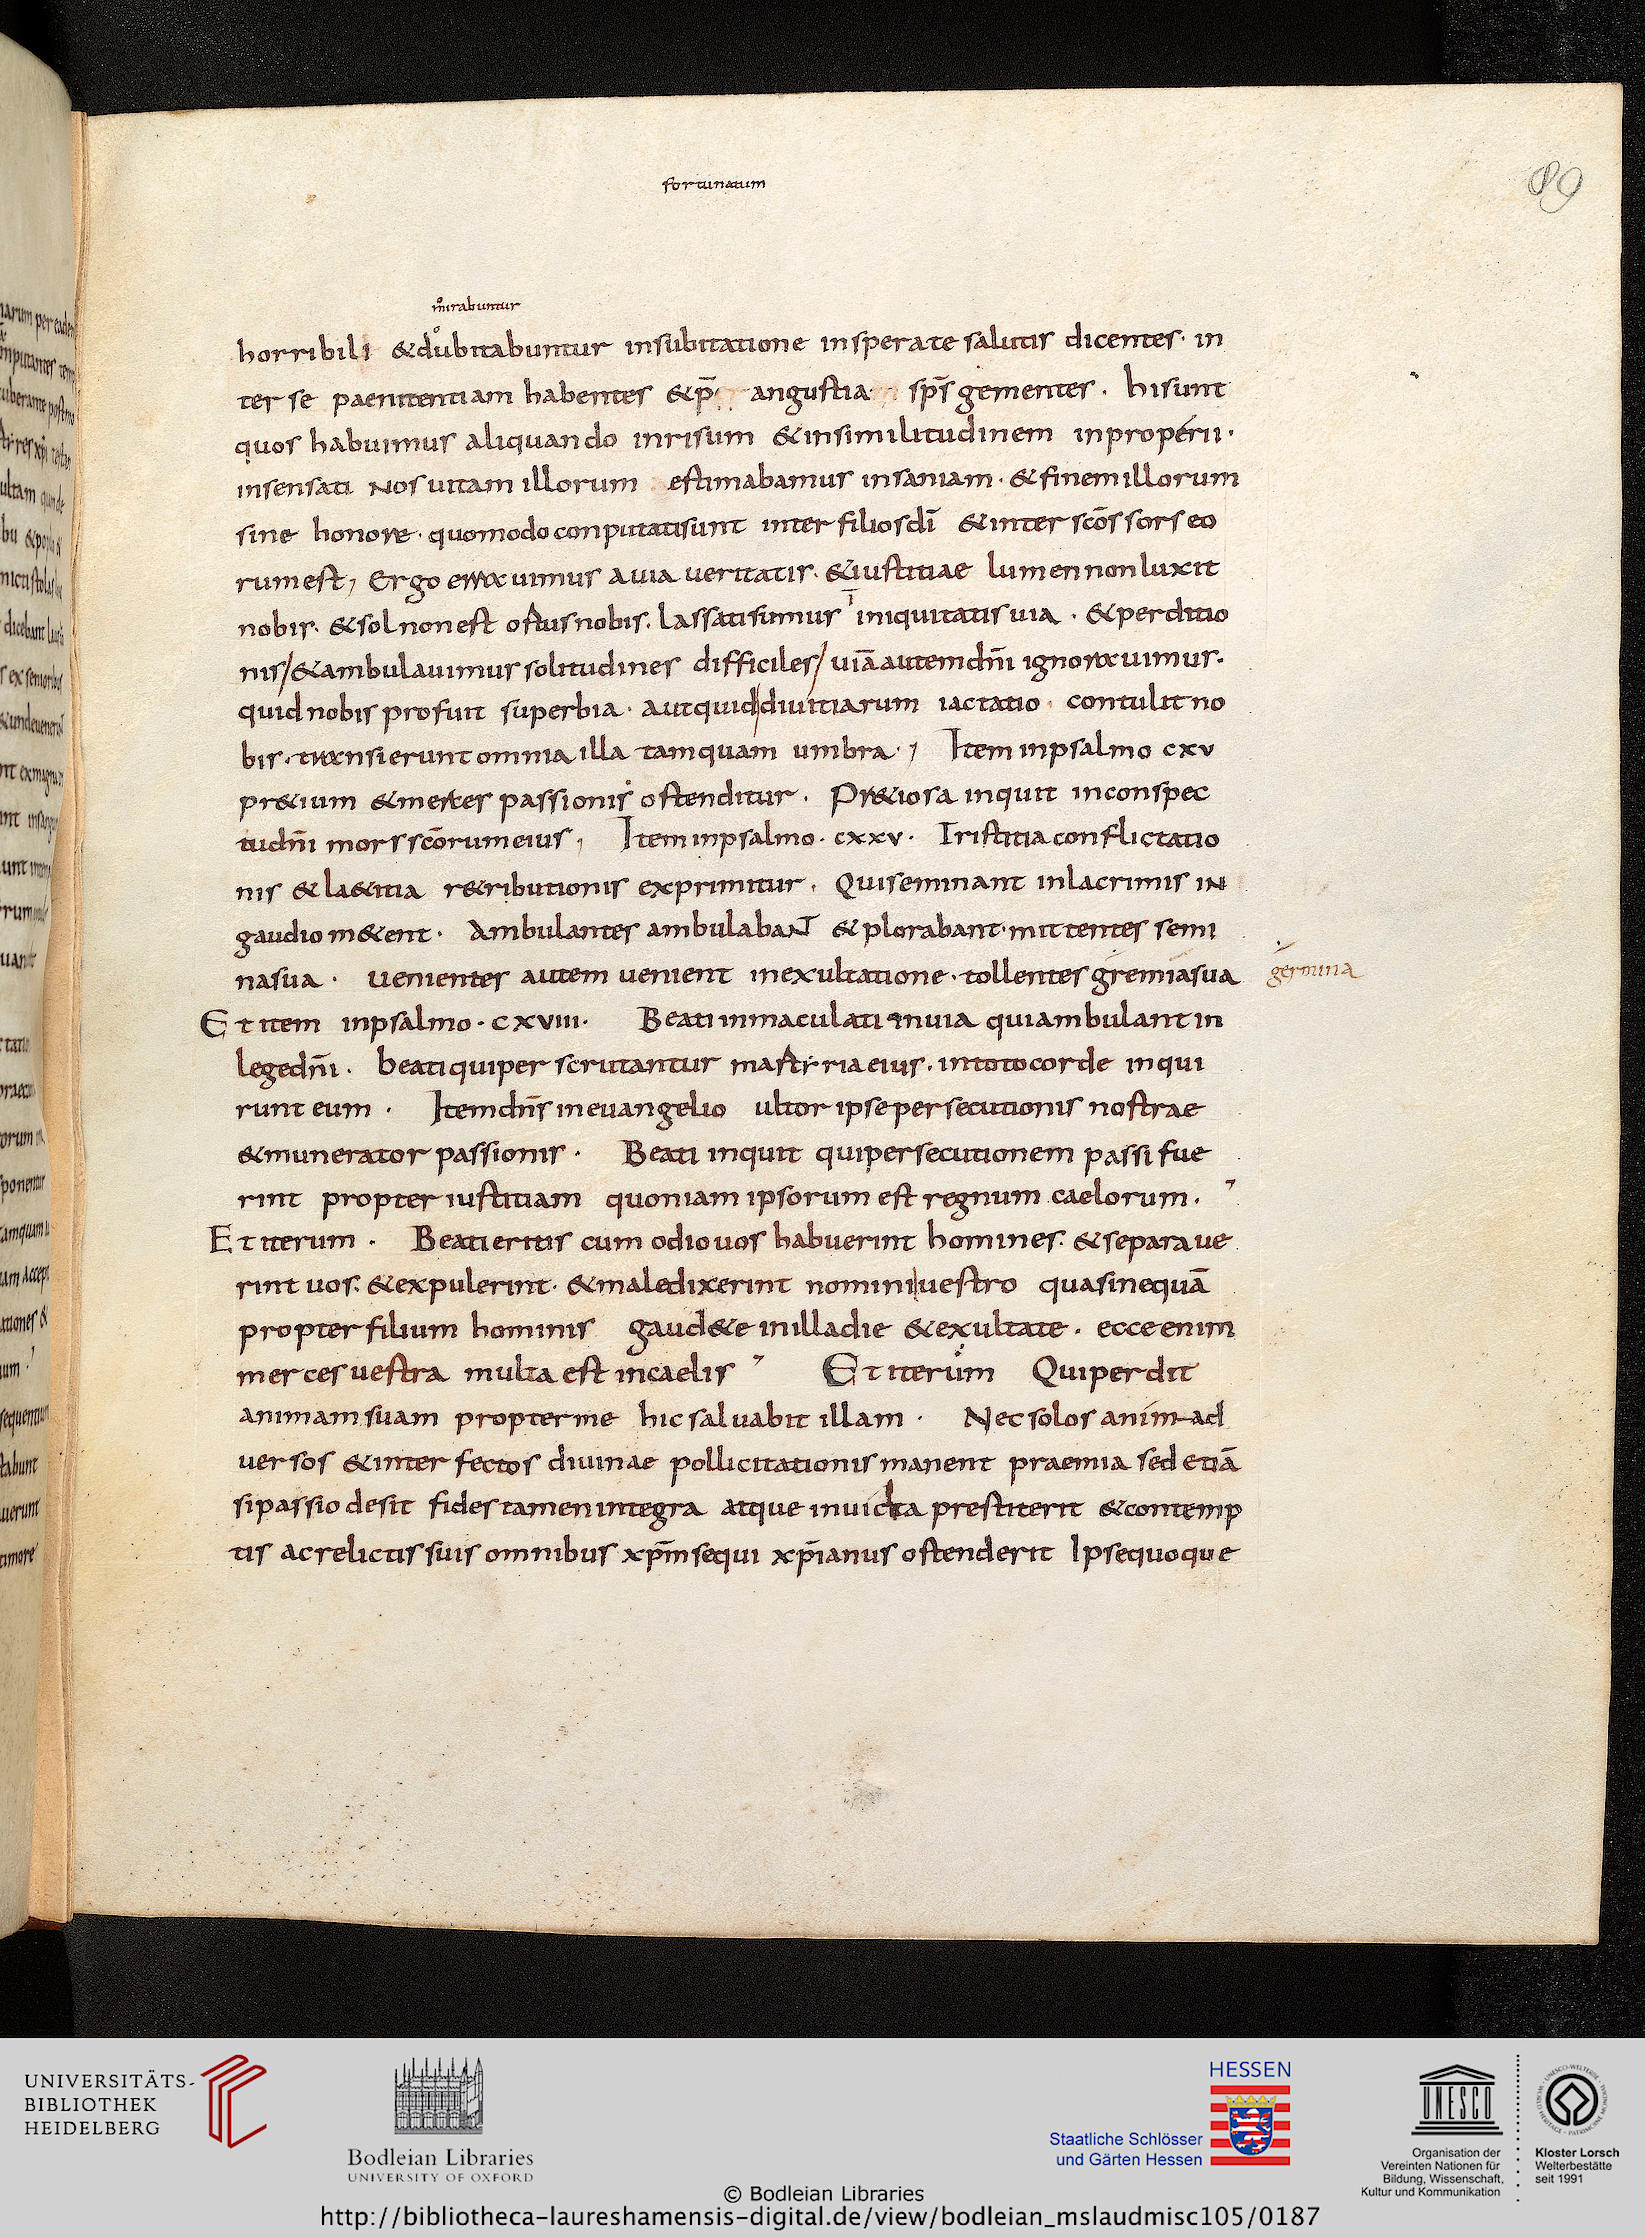 fortunatum
89
mirabuntur
horribili & dubitabuntur insubitatione insperate salutis dicentes · in
ter se paenitentiam habentes & p̄ angustia sp̄s gementes . hi sunt
quos habuimus aliquando inrisum & insimilitudinem inproperii ·
insensati nos uitam illorum estimabamus insaniam · & finem illorum
sine honore · quomodo conputati sunt inter filios dī & inter sc̄os sors eo
rum est, Ergo errauimus a uia ueritatis · & iustitiae lumen non luxit
nobis · & sol non est ortus nobis . lassati sumus ī iniquitatis uia · & perditio
nis / & ambulauimus solitudines difficiles / uiā autem dn̄i ignorauimus .
quid nobis profuit superbia · aut quid diuitiarum iactatio · contulit no
bis · transierunt omnia illa tamquam umbra ·, Item in psalmo cxv
pr&ium & merces passionis ostenditur . Pr&iosa inquit in conspec
tu dn̄i mors sc̄orum eius , Item in psalmo · cxxv · Tristitia conflictatio
nis & la&itia r&ributionis exprimitur . Qui seminant in lacrimis in
gaudio m&ent · Ambulantes ambulabant & plorabant · mittentes semi
na sua · uenientes autem uenient in exultatione · tollentes gremia sua
germina
Et item in psalmo · cxviii · Beati inmaculati in uia qui ambulant in
lege dn̄i . beati qui perscrutantur martyria eius . in toto corde inqui
runt eum . Item dn̄s in euangelio ultor ipse persecutionis nostrae
& munerator passionis . Beati inquit qui persecutionem passi fue
rint propter iustitiam quoniam ipsorum est regnum caelorum . ,
Et iterum . Beati eritis cum odio uos habuerint homines . & separaue
rint uos . & expulerint . & maledixerint nomini uestro quasi nequā
propter filium hominis gaud&e in illa die & exultate . ecce enim
merces uestra multa est in caelis , Et iterum Qui perdit
animam suam propter me hic saluabit illam . Nec solos animad
uersos & interfectos diuinae pollicitationis manent praemia sed etiā
si passio desit fides tamen integra atque inuicta prestiterit & contemp
tis ac relictis suis omnibus xp̄m sequi xp̄ianus ostenderit Ipse quoque
UNIVERSITÄTS-
BIBLIOTHEK
HEIDELBERG
Bodleian Libraries
UNIVERSITY OF OXFORD
HESSEN
Staatliche Schlösser
und Gärten Hessen
UNESCO
Organisation der
Vereinten Nationen für
Bildung, Wissenschaft,
Kultur und Kommunikation
Kloster Lorsch
Welterbestätte
seit 1991
© Bodleian Libraries
http://bibliotheca-laureshamensis-digital.de/view/bodleian_mslaudmisc105/0187